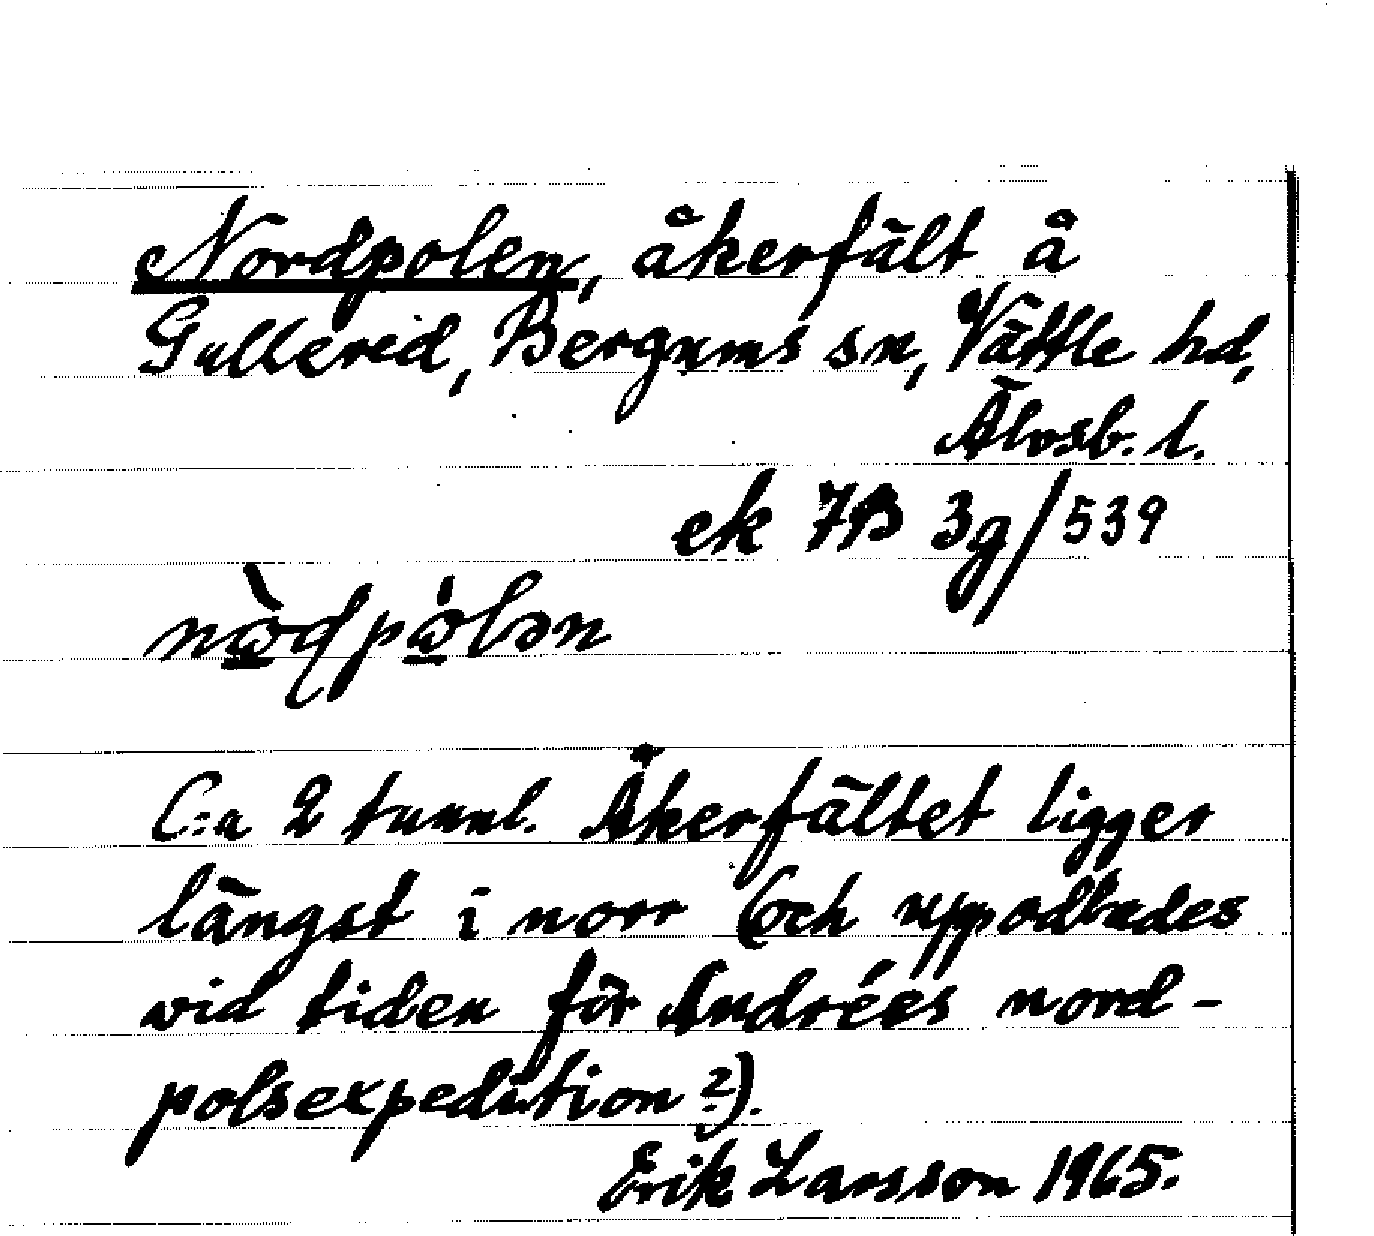 Nordpolen, åkerfält å
Gullered, Bergums sn, Vättle hd,
Älvsb. l.
ek 7B 3g/539
C:a 2 tunnl. Åkerfältet ligger
längst i norr (och uppodlades
vid tiden för Andrées nord-
polsexpedition?).
Erik Larsson 1965.